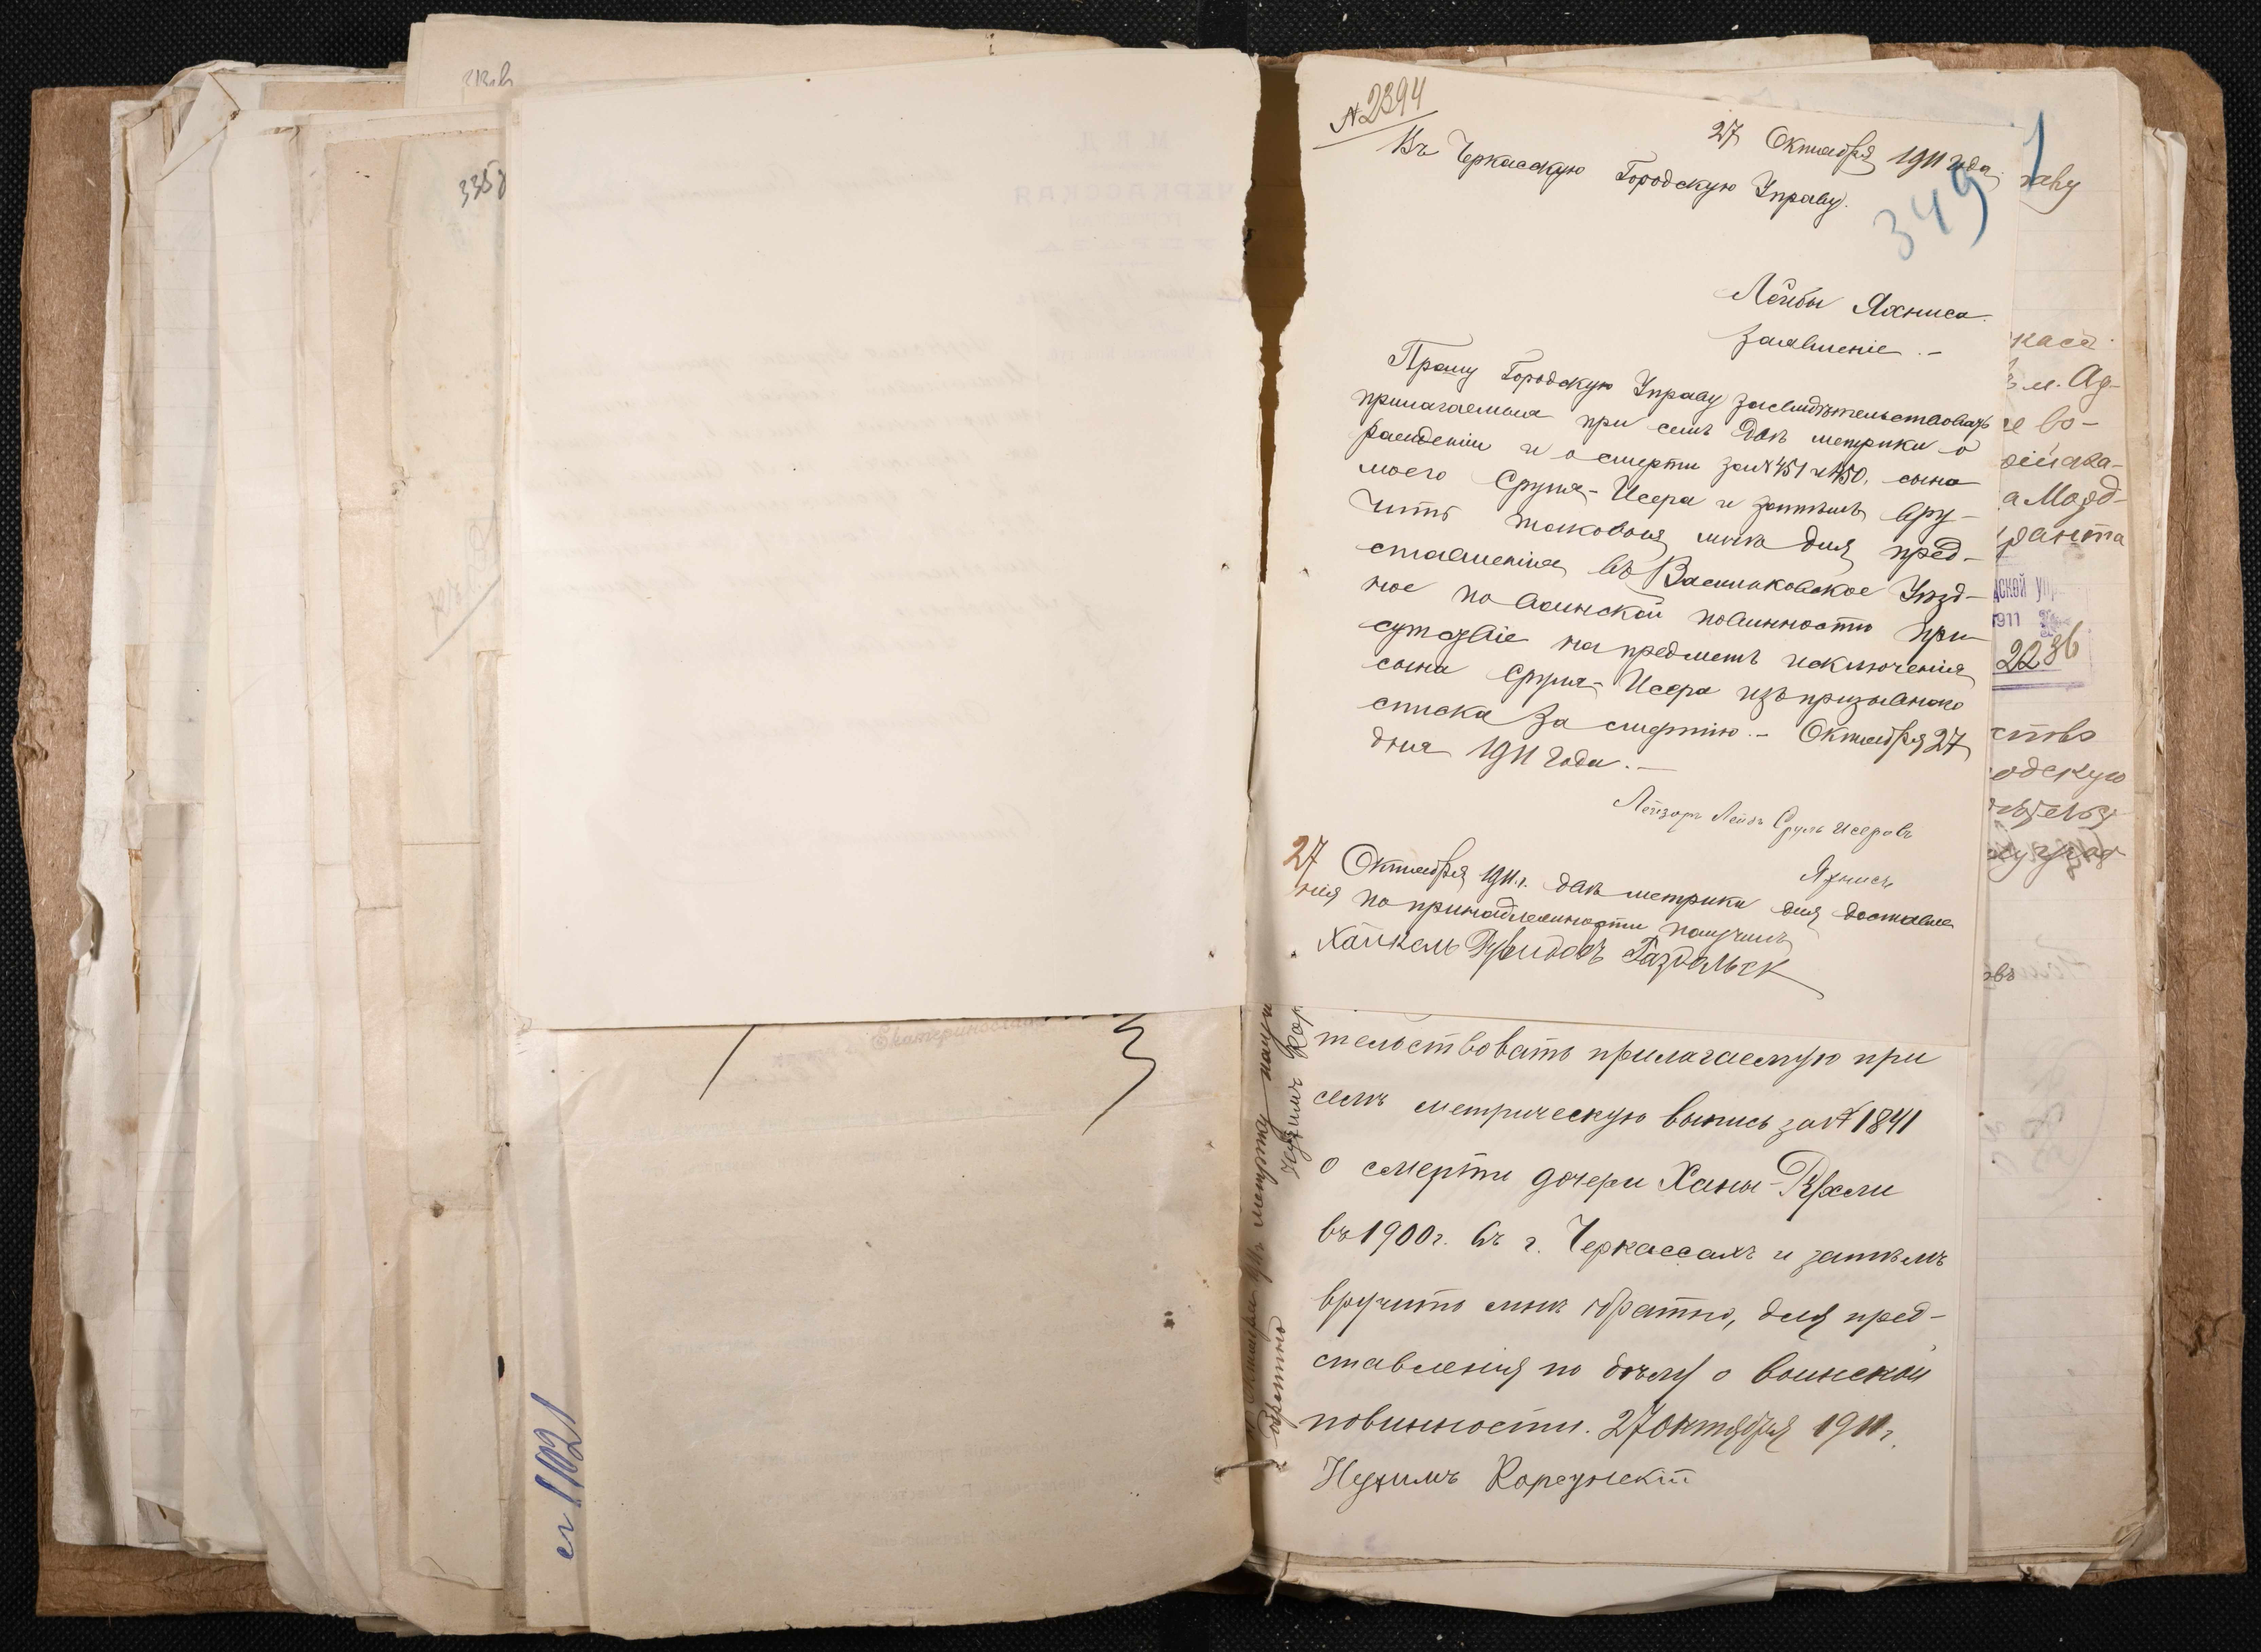 3358
№ 2394
27 Октября 1911 года.
Въ Черкасскую Городскую Управу.
349
Лейбы Яхниса
Заявленіе. –
Прошу Городскую Управу засвидѣтельствовать
прилагаемыя при семъ двѣ метрики о
рожденіи и о смерти за № 451 и 450, сына
моего Сруля-Исера и затѣмъ вру-
чить таковыя мнѣ для пред-
ставленія въ Васильковское Уѣзд-
ное по воинской повинности При-
сутствіе на предметъ исключенія
сына Сруля-Исера изъ призывного
списка за смертію. – Октября 27
дня 1911 года. –
Лейзоръ Лейбъ Сруль Исеровъ
Яхнисъ
27 Октября 1911 г. двѣ метрики для доставле
нія по принадлежности получилъ
Хайкель
тельствовать прилагаемую при
семъ метрическую выпись за № 1841
о смерти дочери Ханы-Рухли
въ 1900 г. въ г. Черкассахъ и затѣмъ
вручить мнѣ обратно, для пред-
ставленія по дѣлу о воинской
повинности. 27 октября 1911 г.
Нухимъ Корсунскій
обратно
1
раву
касс
м. Ад-
во-
а Морд-
дской упр
1911
2236
ство
одскую
овъ
Екатеринослав
1102